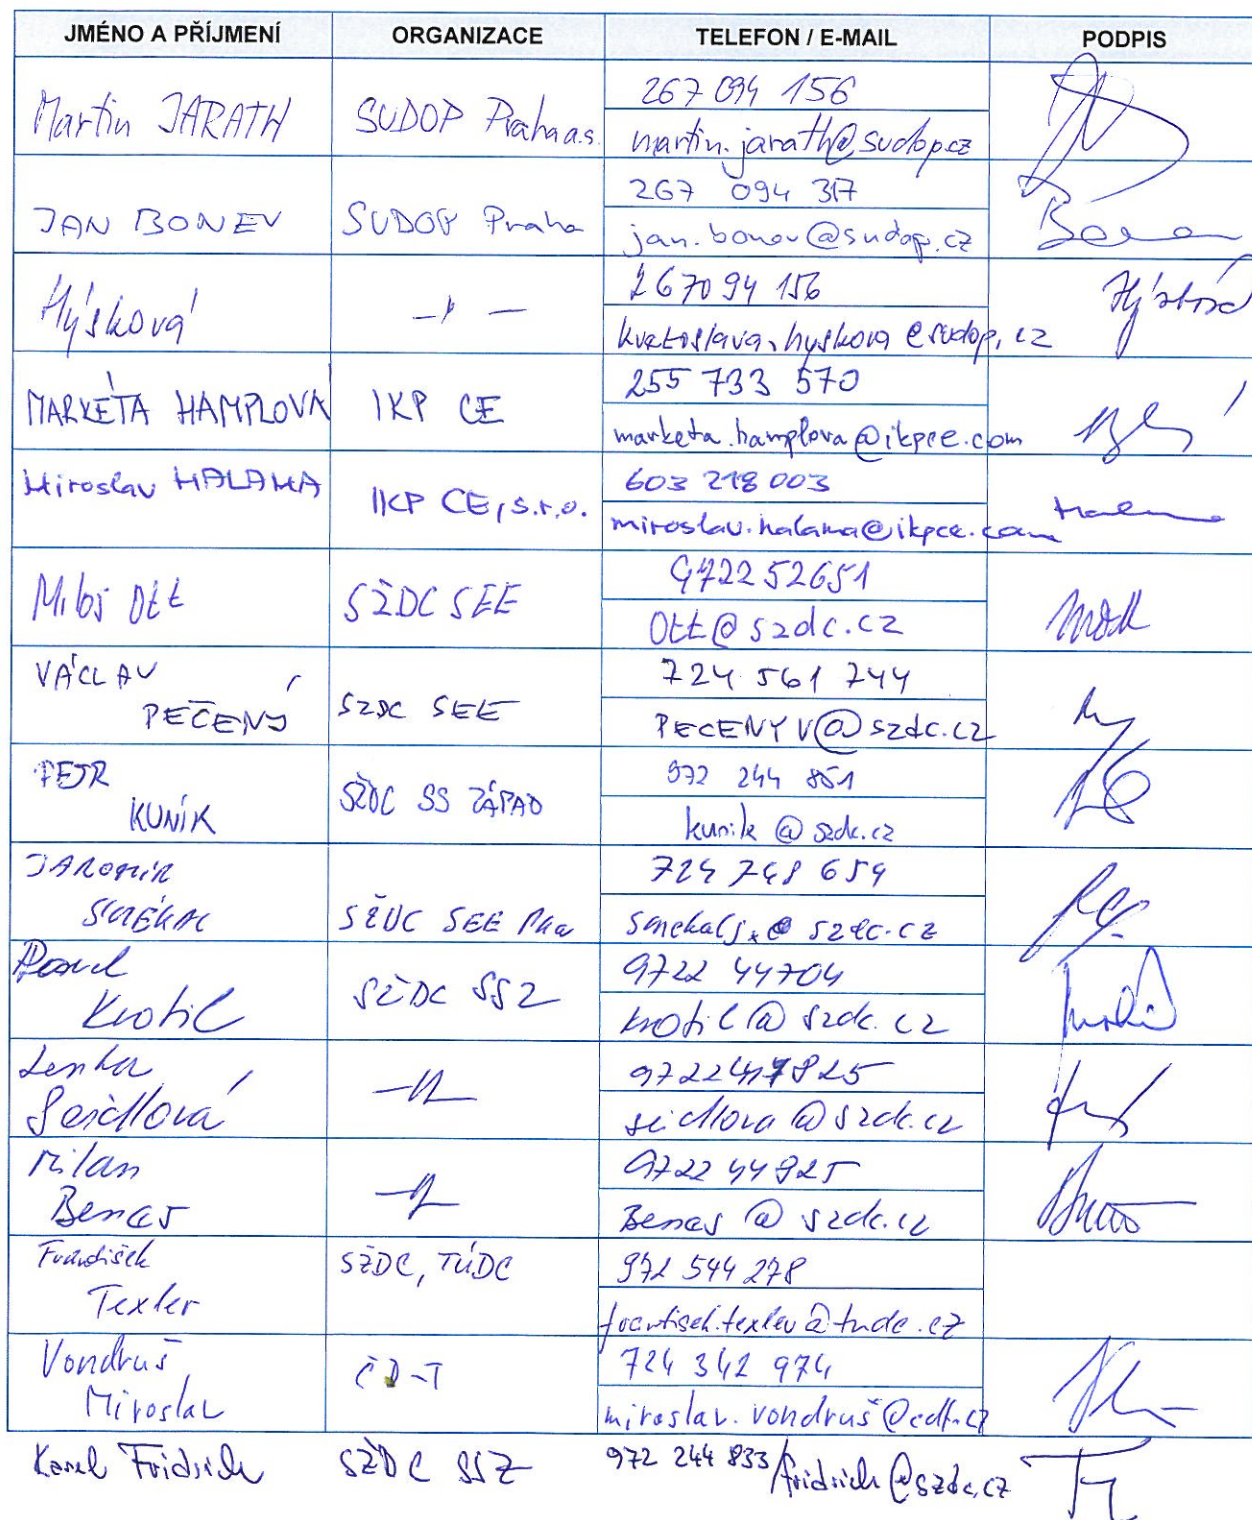 JMÉNO A PŘÍJMENÍ ORGANIZACE TELEFON / E-MAIL PODPIS
Martin JARATH SUDOP Praha a.s. 267 094 156
martin.jarath@sudop.cz
JAN BONEV SUDOP Praha 267 094 317
jan.bonev@sudop.cz
Hýsková 267094 156
kvetoslava.hyskova@sudop.cz
MARKÉTA HAMPLOVÁ IKP CE 255 733 570
marketa.hamplova@ikpce.com
Miroslav HALAMA IKP CE, s.r.o. 603 218 003
miroslav.halama@ikpce.com
Miloš Ott SŽDC SEE 972252651
Ott@szdc.cz
VÁCLAV
PEČENÝ SZDC SEE 724 561 744
PECENYV@szdc.cz
PETR
KUNÍK SŽDC SS ZÁPAD 972 244 851
kunik@szdc.cz
JAROMÍR
SMÉKAL SŽDC SEE Pha 724 748 654
smekalj@szdc.cz
Pavel
Krotil SŽDC SSZ 9722 44704
krotil@szdc.cz
Lenka
Seidlová
seidlova@szdc.cz
Milan
Beneš 9722 44825
Benes@szdc.cz
František
Texler SŽDC, TÚDC 972 544 278
frantisek.texler@tudc.cz
Vondruš
Miroslav ČD-T 724 342 974
miroslav.vondruš@cdt.cz
Karel Fridrich SŽDC SSZ 972 244 833/fridrich@szdc.cz